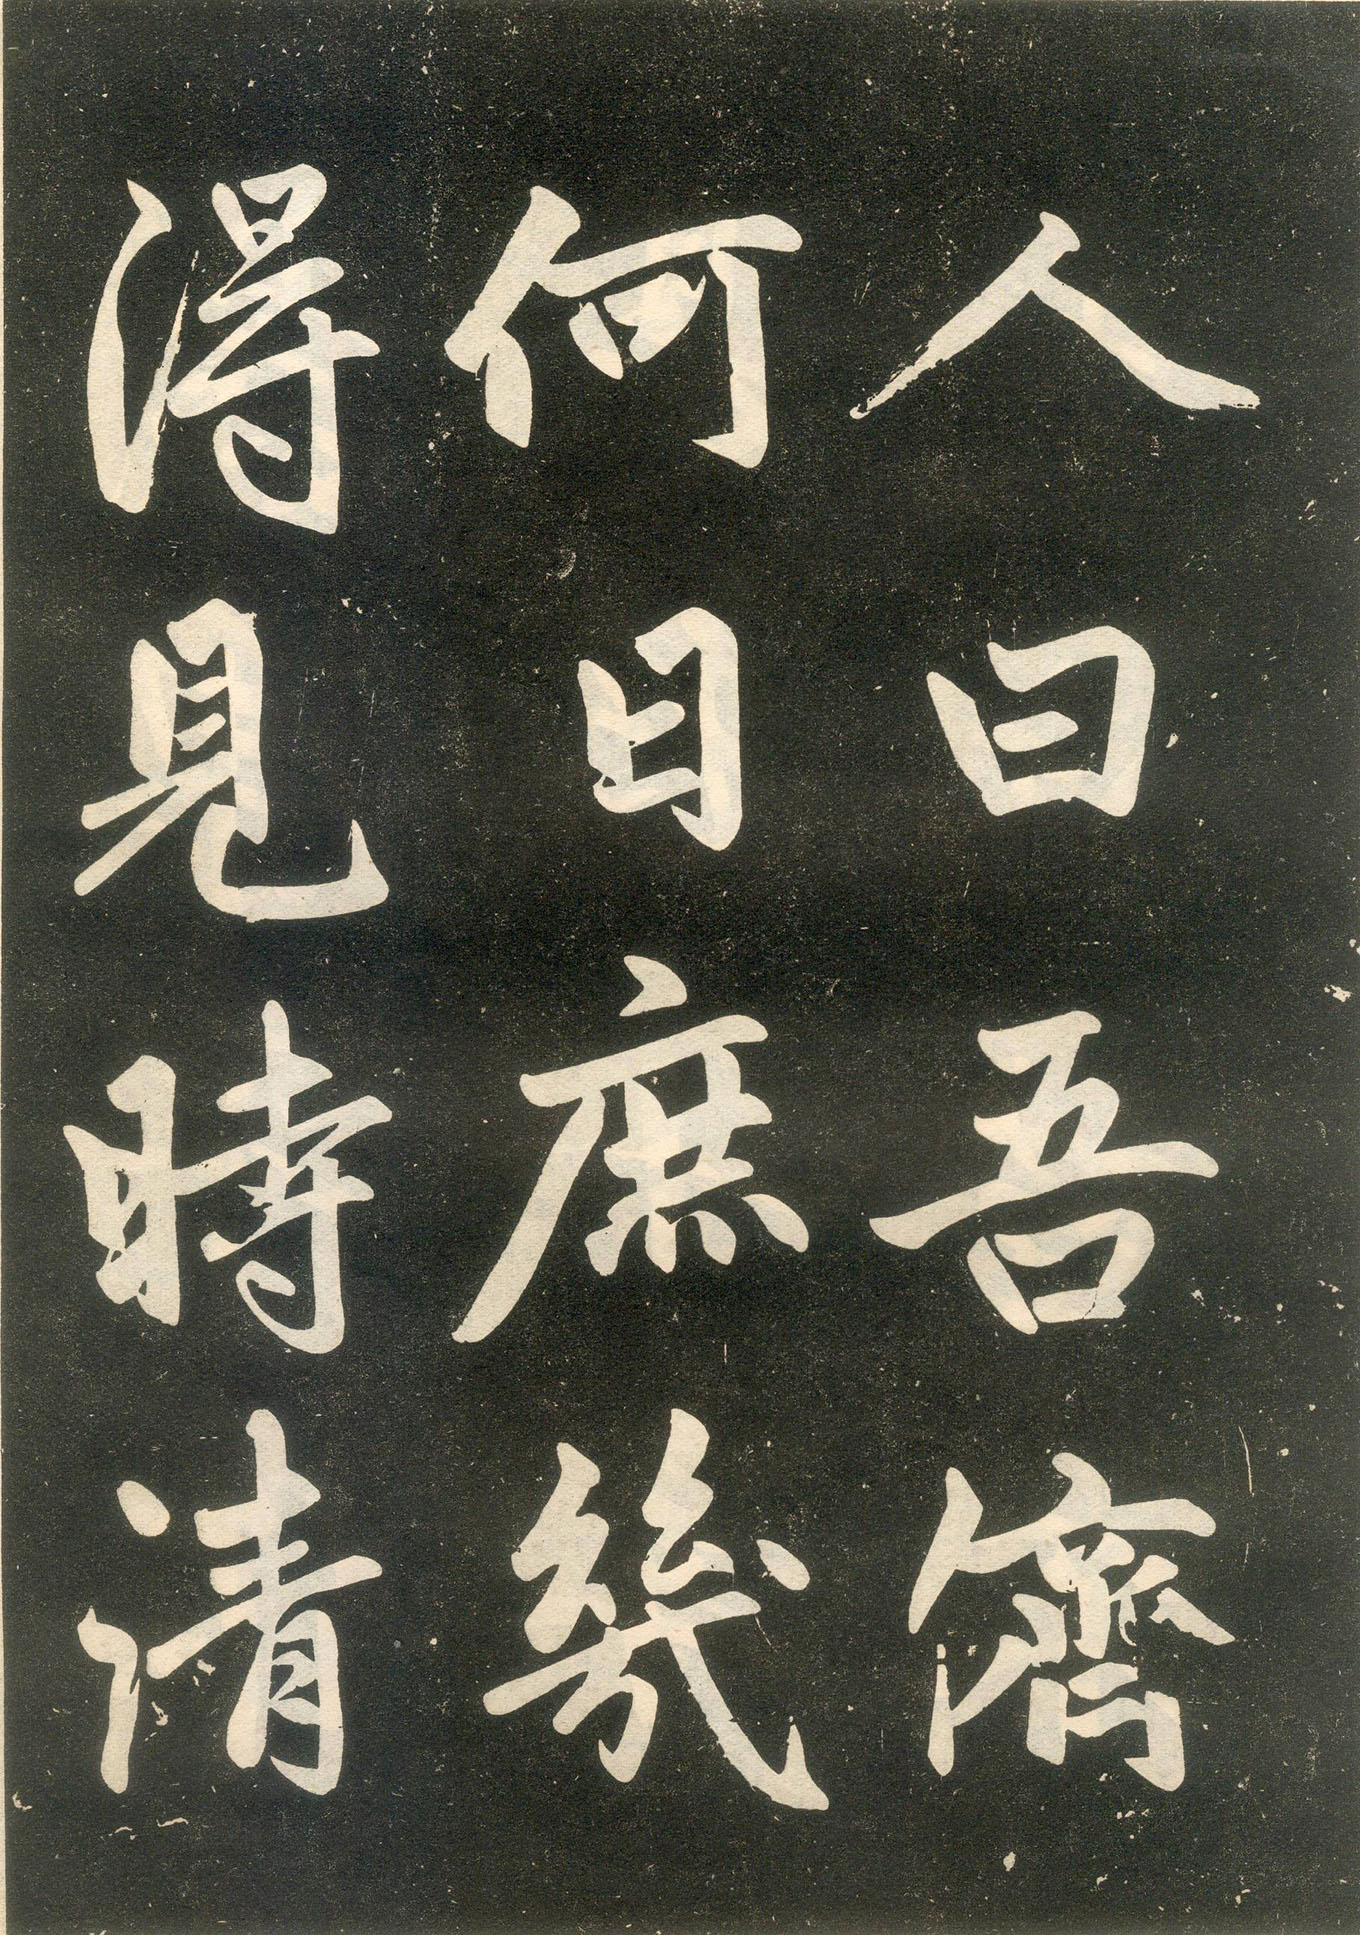 人曰吾儕
何日庶幾
得見時清